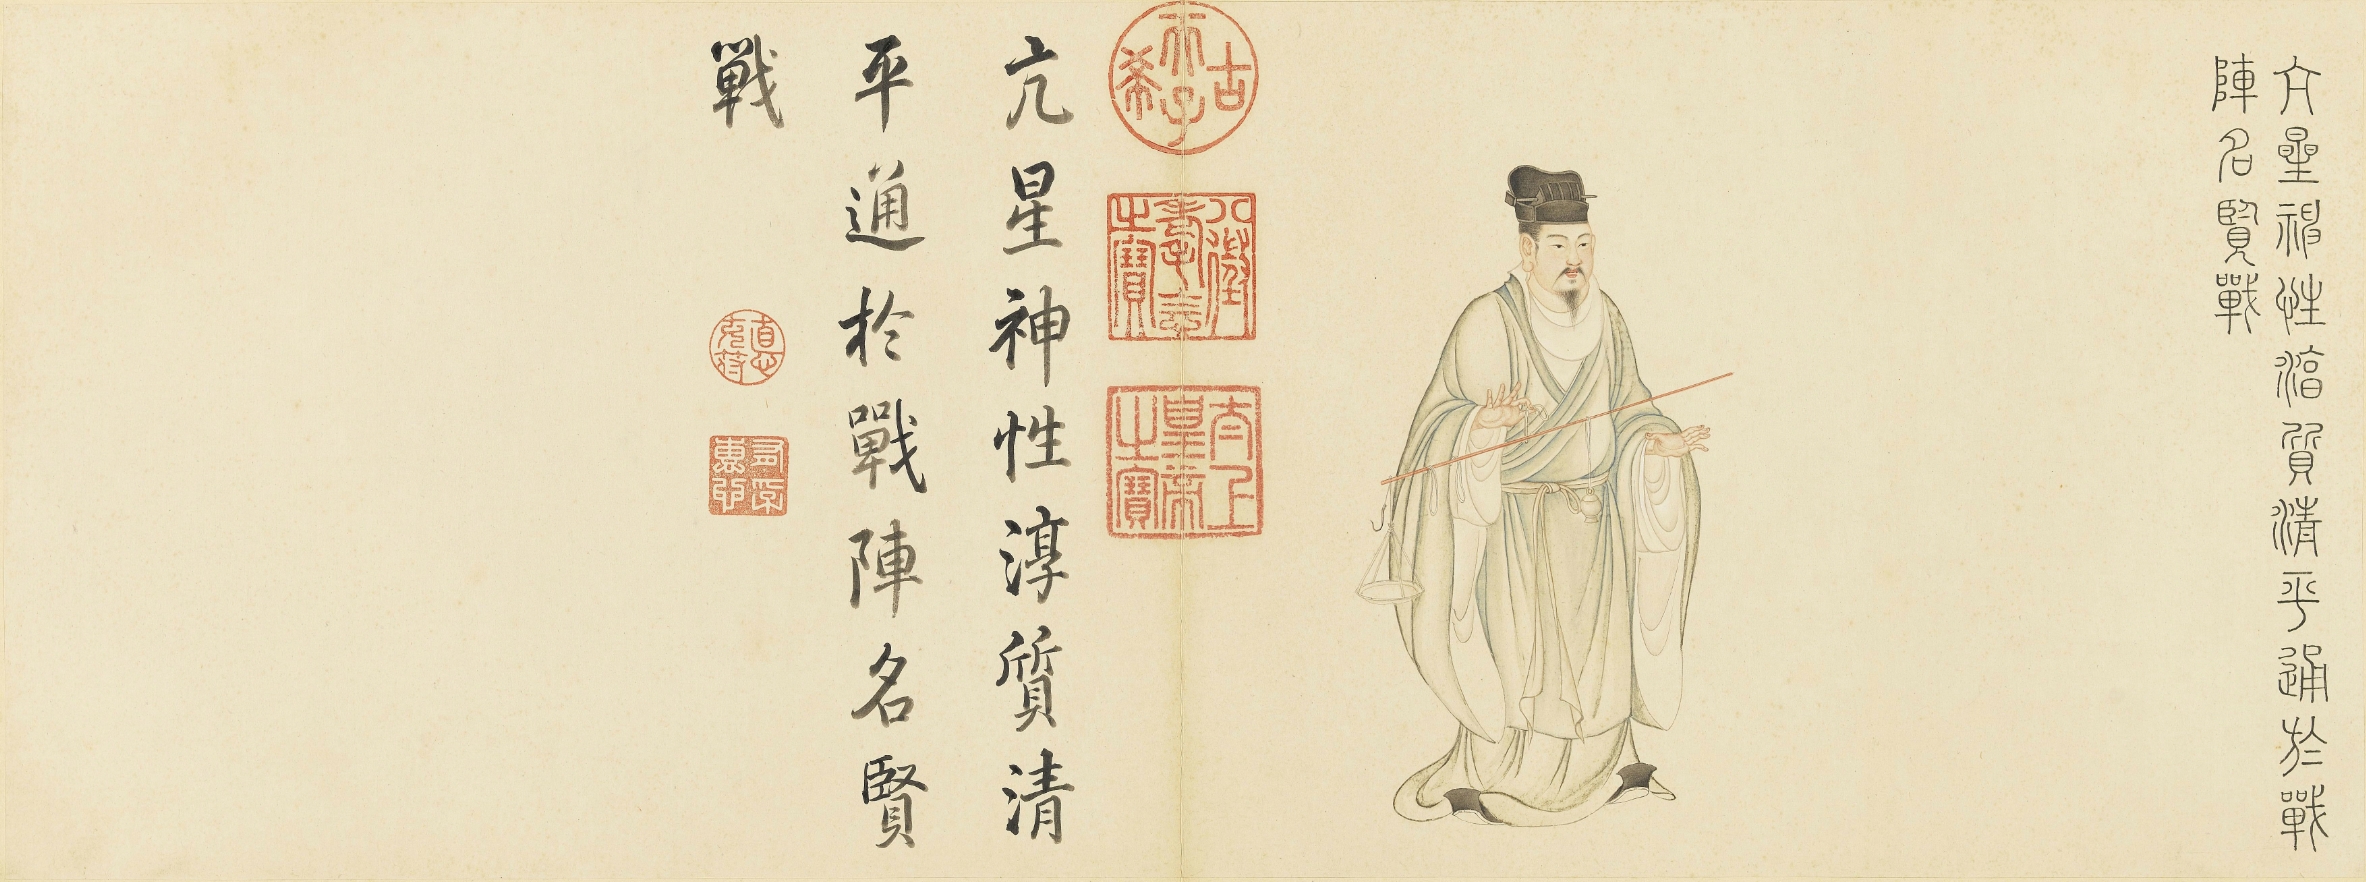 亢星神性淳質清平通於戰
陣名賢戰
古希天子
八徵耄念之寶
太上皇帝之寶
亢星神性淳質清
平通於戰陣名賢
戰